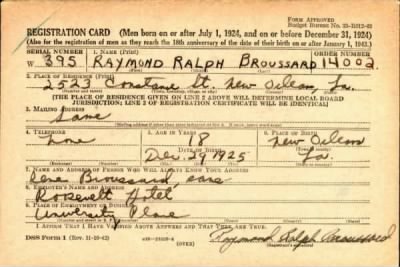 FORM APPROVED
Budget Bureau No. 33-R012-42
REGISTRATION CARD (Men born on or after July 1, 1924, and on or before December 31, 1924)
(Also for the registration of men as they reach the 18th anniversary of the date of their birth on or after January 1, 1943.)
SERIAL NUMBER
ORDER NUMBER
W 395 RAYMOND RALPH BROUSSARD 14002
2. PLACE OF RESIDENCE
2523 St. New Orleans, La.
(THE PLACE OF RESIDENCE GIVEN ON LINE 2 ABOVE WILL DETERMINE LOCAL BOARD
JURISDICTION; LINE 2 OF REGISTRATION CERTIFICATE WILL BE IDENTICAL)
3. MAILING ADDRESS
Same
4. TELEPHONE
5. AGE IN YEARS
6. PLACE OF BIRTH
none
18
New Orleans
DATE OF BIRTH
Dec. 29 1925
La.
7. NAME AND ADDRESS OF PERSON WHO WILL ALWAYS KNOW YOUR ADDRESS
Broussard, same
8. EMPLOYER'S NAME AND ADDRESS
Roosevelt Hotel
9. PLACE OF EMPLOYMENT OR BUSINESS
University Place
I AFFIRM THAT I HAVE VERIFIED ABOVE ANSWERS AND THAT THEY ARE TRUE.
DSS Form 1 (Rev. 11-16-42)
(OVER)
Raymond Ralph Broussard